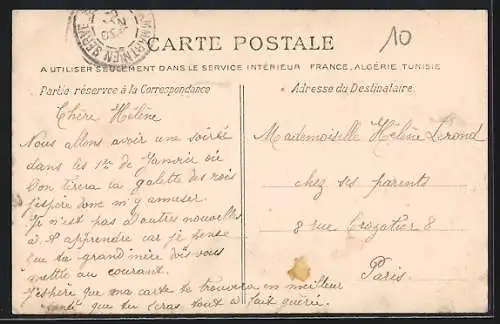 DAMMARTIN EN SERVE
10
CARTE POSTALE
A UTILISER SEULEMENT DANS LE SERVICE INTÉRIEUR FRANCE, ALGÉRIE TUNISIE
Partie réservée à la Correspondance
Adresse du Destinataire
Chère Hélène
Nous allons avoir une soirée
dans les 1er de Janvier où
l'on tirera la galette des rois
j'espère donc m'y amuser.
Je n'est pas d'autres nouvelles
à t'apprendre car je pense
que ta grand mère vous
mettre au courant.
J'espère que ma carte te trouvera en meilleur
santé que tu seras tout à fait guérie.
Mademoiselle Hélène Lerond
chez ses parents
8 rue Crozatier 8
Paris.